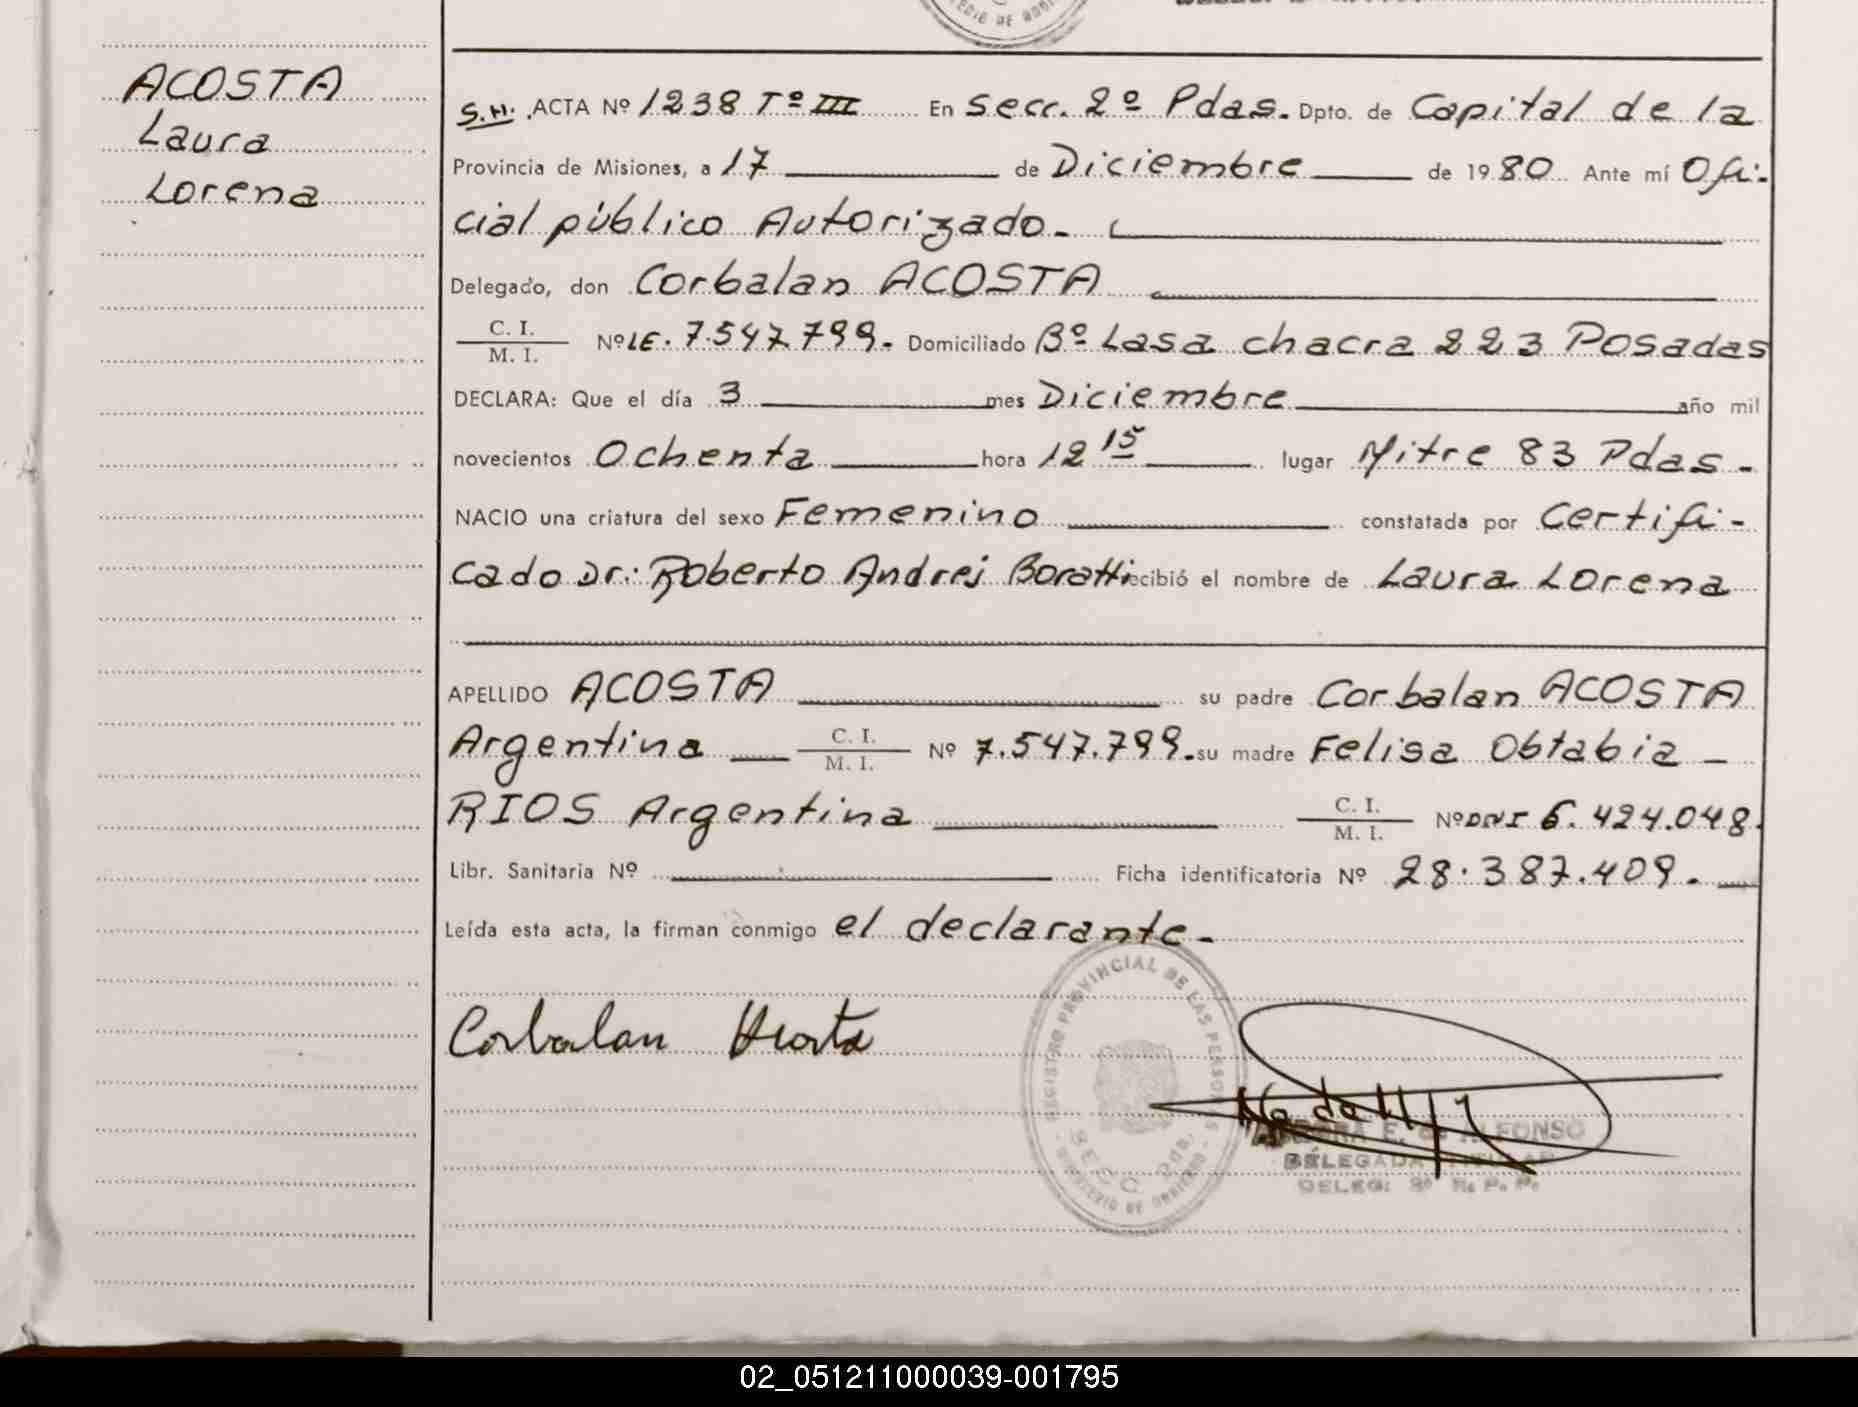 ACOSTA
Laura
Lorena
S.H. ACTA Nº 1238 Tº III En Secc. 2º Pdas. Dpto. de Capital de la
Provincia de Misiones, a 17 de Diciembre de 1980 Ante mí Ofi-
cial público Autorizado.-
Delegado, don Corbalan ACOSTA
C. I.
M. I.
Nº LE. 7.547.799.- Domiciliado Bº Lasa chacra 223 Posadas
DECLARA: Que el día 3 mes Diciembre año mil
novecientos Ochenta hora 12 15 lugar Mitre 83 Pdas.-
NACIO una criatura del sexo Femenino constatada por Certifi-
cado Dr: Roberto Andres Boratti recibió el nombre de Laura Lorena
APELLIDO ACOSTA su padre Corbalan ACOSTA
Argentina C. I. M. I. Nº 7.547.799.- su madre Felisa Obtabia -
RIOS Argentina C. I. M. I. Nº DNI 6.424.048.
Libr. Sanitaria Nº Ficha identificatoria Nº 28.387.409.-
Leída esta acta, la firman conmigo el declarante.-
Corbalan Acosta
REGISTRO PROVINCIAL DE LAS PERSONAS
SECC. 2da.
MINISTERIO DE GOBIERNO
E. de ALFONSO
DELEGADA TITULAR
DELEG: 2º R. P. P.
02_051211000039-001795